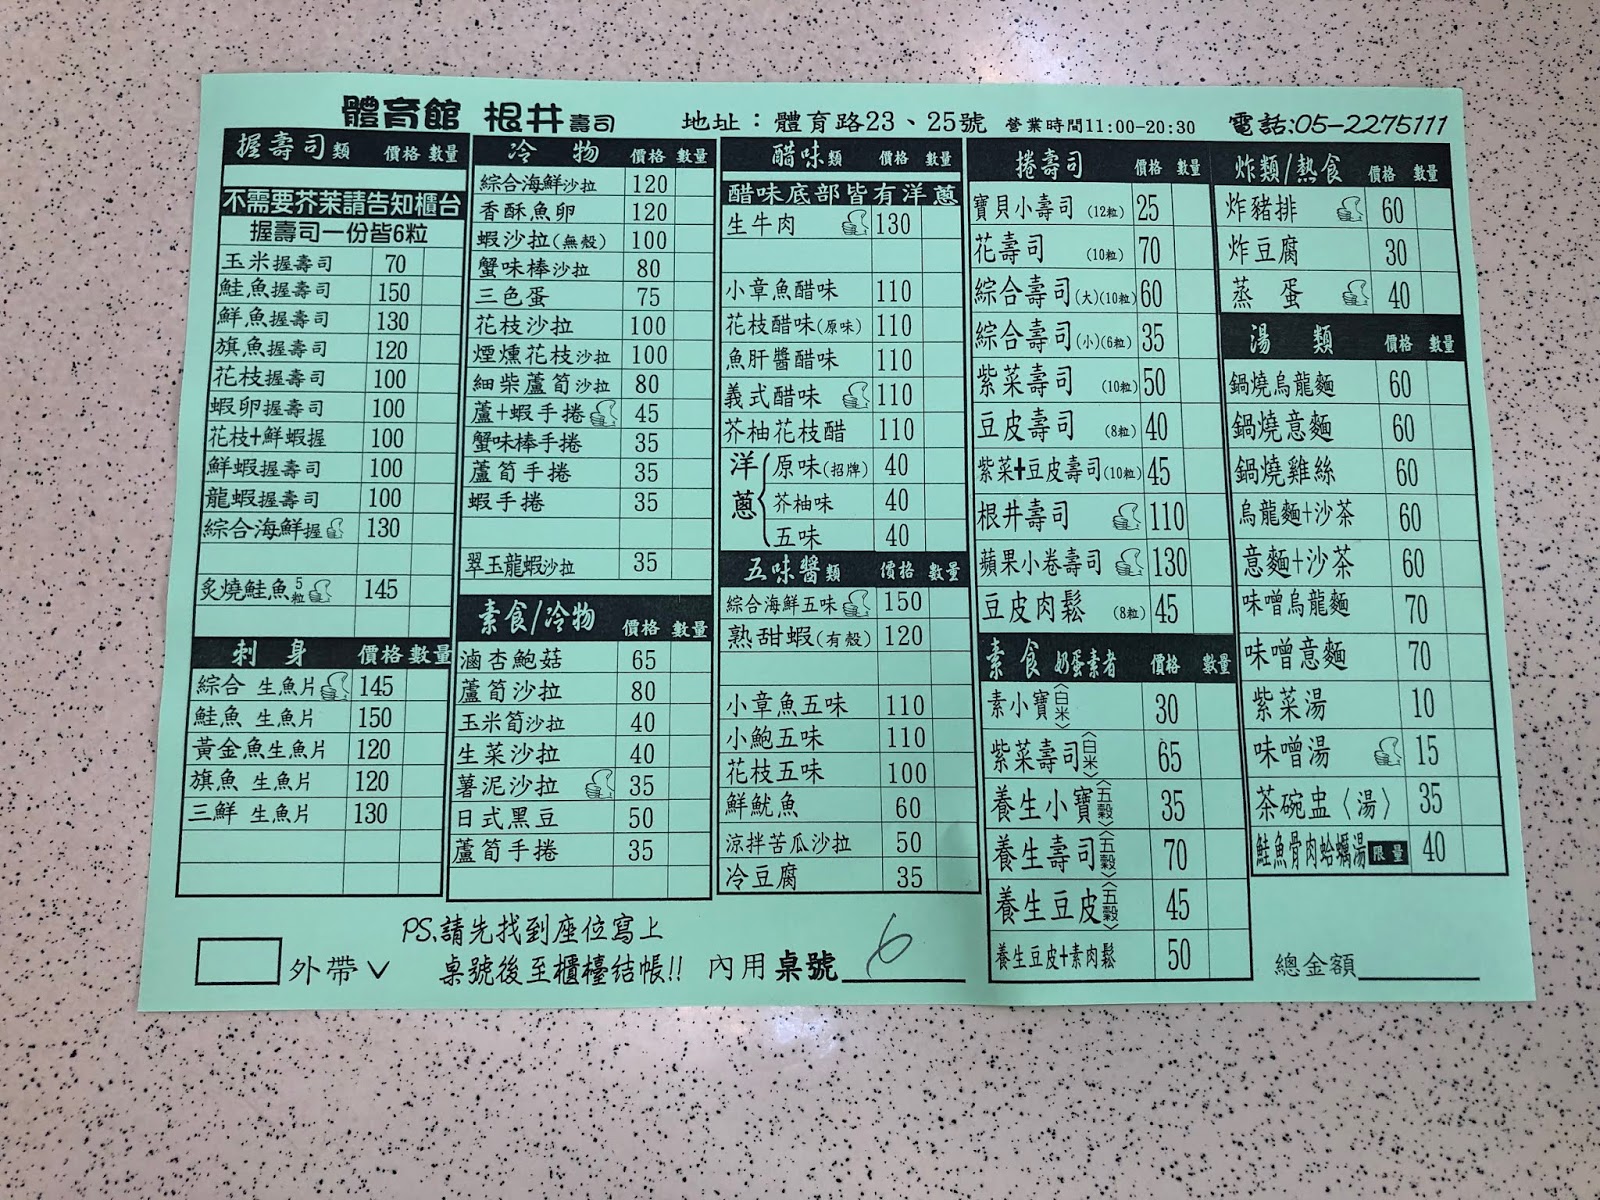 體育館 根井壽司 地址：體育路23、25號 營業時間11:00-20:30 電話:05-2275111
握壽司類 價格 數量
不需要芥茉請告知櫃台
握壽司一份皆6粒
玉米握壽司 70
鮭魚握壽司 150
鮮魚握壽司 130
旗魚握壽司 120
花枝握壽司 100
蝦卵握壽司 100
花枝+鮮蝦握 100
鮮蝦握壽司 100
龍蝦握壽司 100
綜合海鮮握 130
炙燒鮭魚5粒 145
刺身 價格 數量
綜合 生魚片 145
鮭魚 生魚片 150
黃金魚生魚片 120
旗魚 生魚片 120
三鮮 生魚片 130
冷物 價格 數量
綜合海鮮沙拉 120
香酥魚卵 120
蝦沙拉(無殼) 100
蟹味棒沙拉 80
三色蛋 75
花枝沙拉 100
煙燻花枝沙拉 100
細柴蘆筍沙拉 80
蘆+蝦手捲 45
蟹味棒手捲 35
蘆筍手捲 35
蝦手捲 35
翠玉龍蝦沙拉 35
素食/冷物 價格 數量
滷杏鮑菇 65
蘆筍沙拉 80
玉米筍沙拉 40
生菜沙拉 40
薯泥沙拉 35
日式黑豆 50
蘆筍手捲 35
醋味類 價格 數量
醋味底部皆有洋蔥
生牛肉 130
小章魚醋味 110
花枝醋味(原味) 110
魚肝醬醋味 110
義式醋味 110
芥柚花枝醋 110
洋蔥 原味(招牌) 40
芥柚味 40
五味 40
五味醬類 價格 數量
綜合海鮮五味 150
熟甜蝦(有殼) 120
小章魚五味 110
小鮑五味 110
花枝五味 100
鮮魷魚 60
涼拌苦瓜沙拉 50
冷豆腐 35
捲壽司 價格 數量
寶貝小壽司 (12粒) 25
花壽司 (10粒) 70
綜合壽司(大)(10粒) 60
綜合壽司(小)(6粒) 35
紫菜壽司 (10粒) 50
豆皮壽司 (8粒) 40
紫菜+豆皮壽司(10粒) 45
根井壽司 110
蘋果小卷壽司 130
豆皮肉鬆 (8粒) 45
素食 奶蛋素者 價格 數量
素小寶〈白米〉 30
紫菜壽司〈白米〉 65
養生小寶〈五穀〉 35
養生壽司〈五穀〉 70
養生豆皮〈五穀〉 45
養生豆皮+素肉鬆 50
炸類/熱食 價格 數量
炸豬排 60
炸豆腐 30
蒸蛋 40
湯類 價格 數量
鍋燒烏龍麵 60
鍋燒意麵 60
鍋燒雞絲 60
烏龍麵+沙茶 60
意麵+沙茶 60
味噌烏龍麵 70
味噌意麵 70
紫菜湯 10
味噌湯 15
茶碗盅〈湯〉 35
鮭魚骨肉蛤蠣湯 限量 40
外帶∨
PS.請先找到座位寫上
桌號後至櫃檯结帳!!
內用 桌號 6
總金額